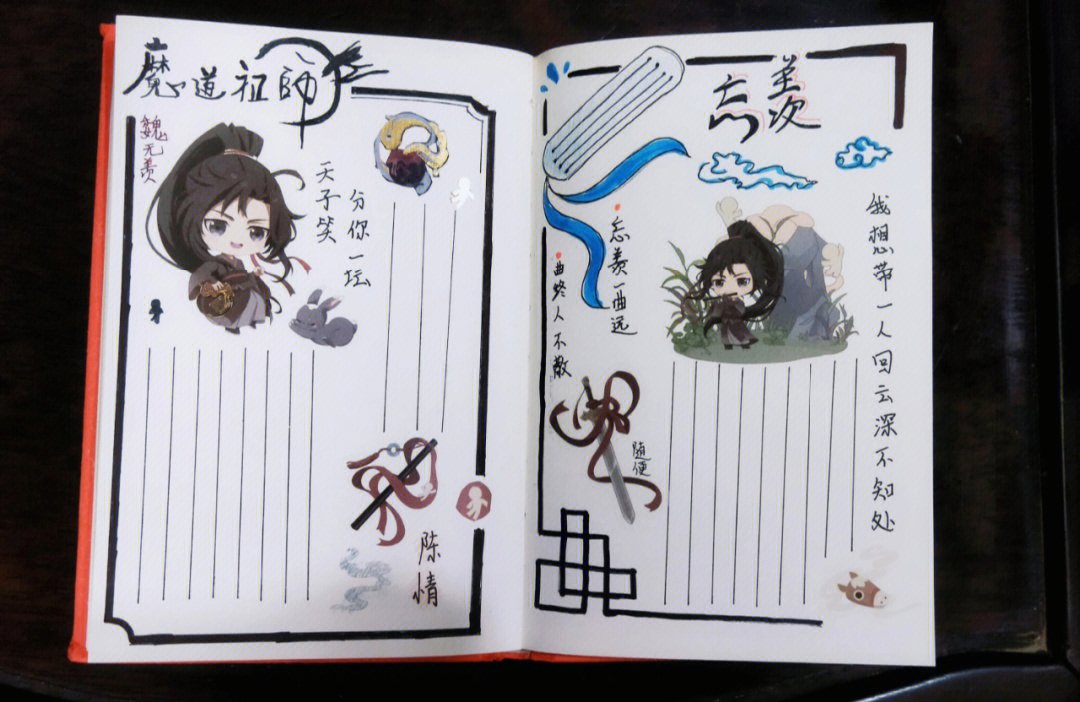 魔道祖師
魏无羡
天子笑
分你一坛
陈情
忘羡
忘羡一曲远
曲终人不散
随便
我想带一人回云深不知处